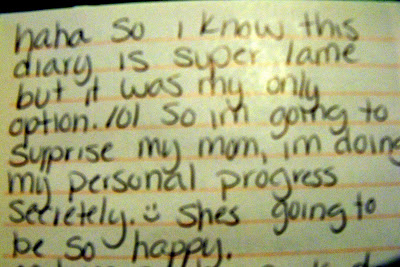 haha so i know this
diary is super lame
but it was my only
option. lol So im going to
surprise my mom, im doing
my personal progress
secietely. :) shes going to
be so happy.